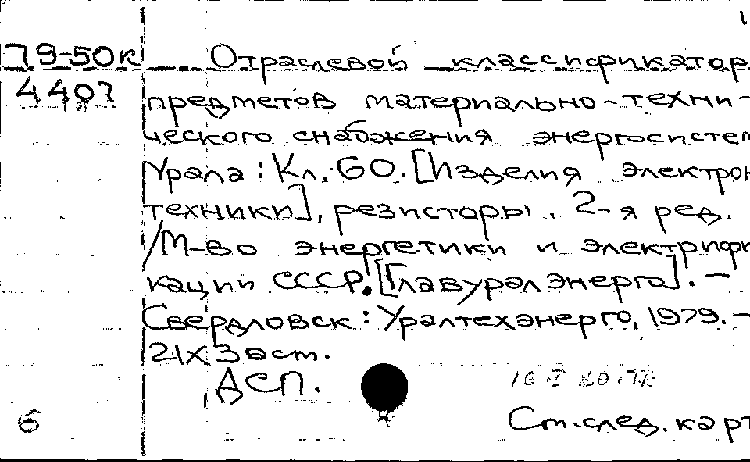 79-50к Отраслевой классификатор
4407 предметов материально-техни-
ческого снабжения энергосистем
Урала: Кл. 60. [Изделия электрон
техники], резисторы. 2-я ред.
/М-во энергетики и электрифи
кации СССР. [Главуралэнерго]. –
Свердловск: Уралтехэнерго, 1979. –
21х30см.
ДСП.
6 См. след. карт